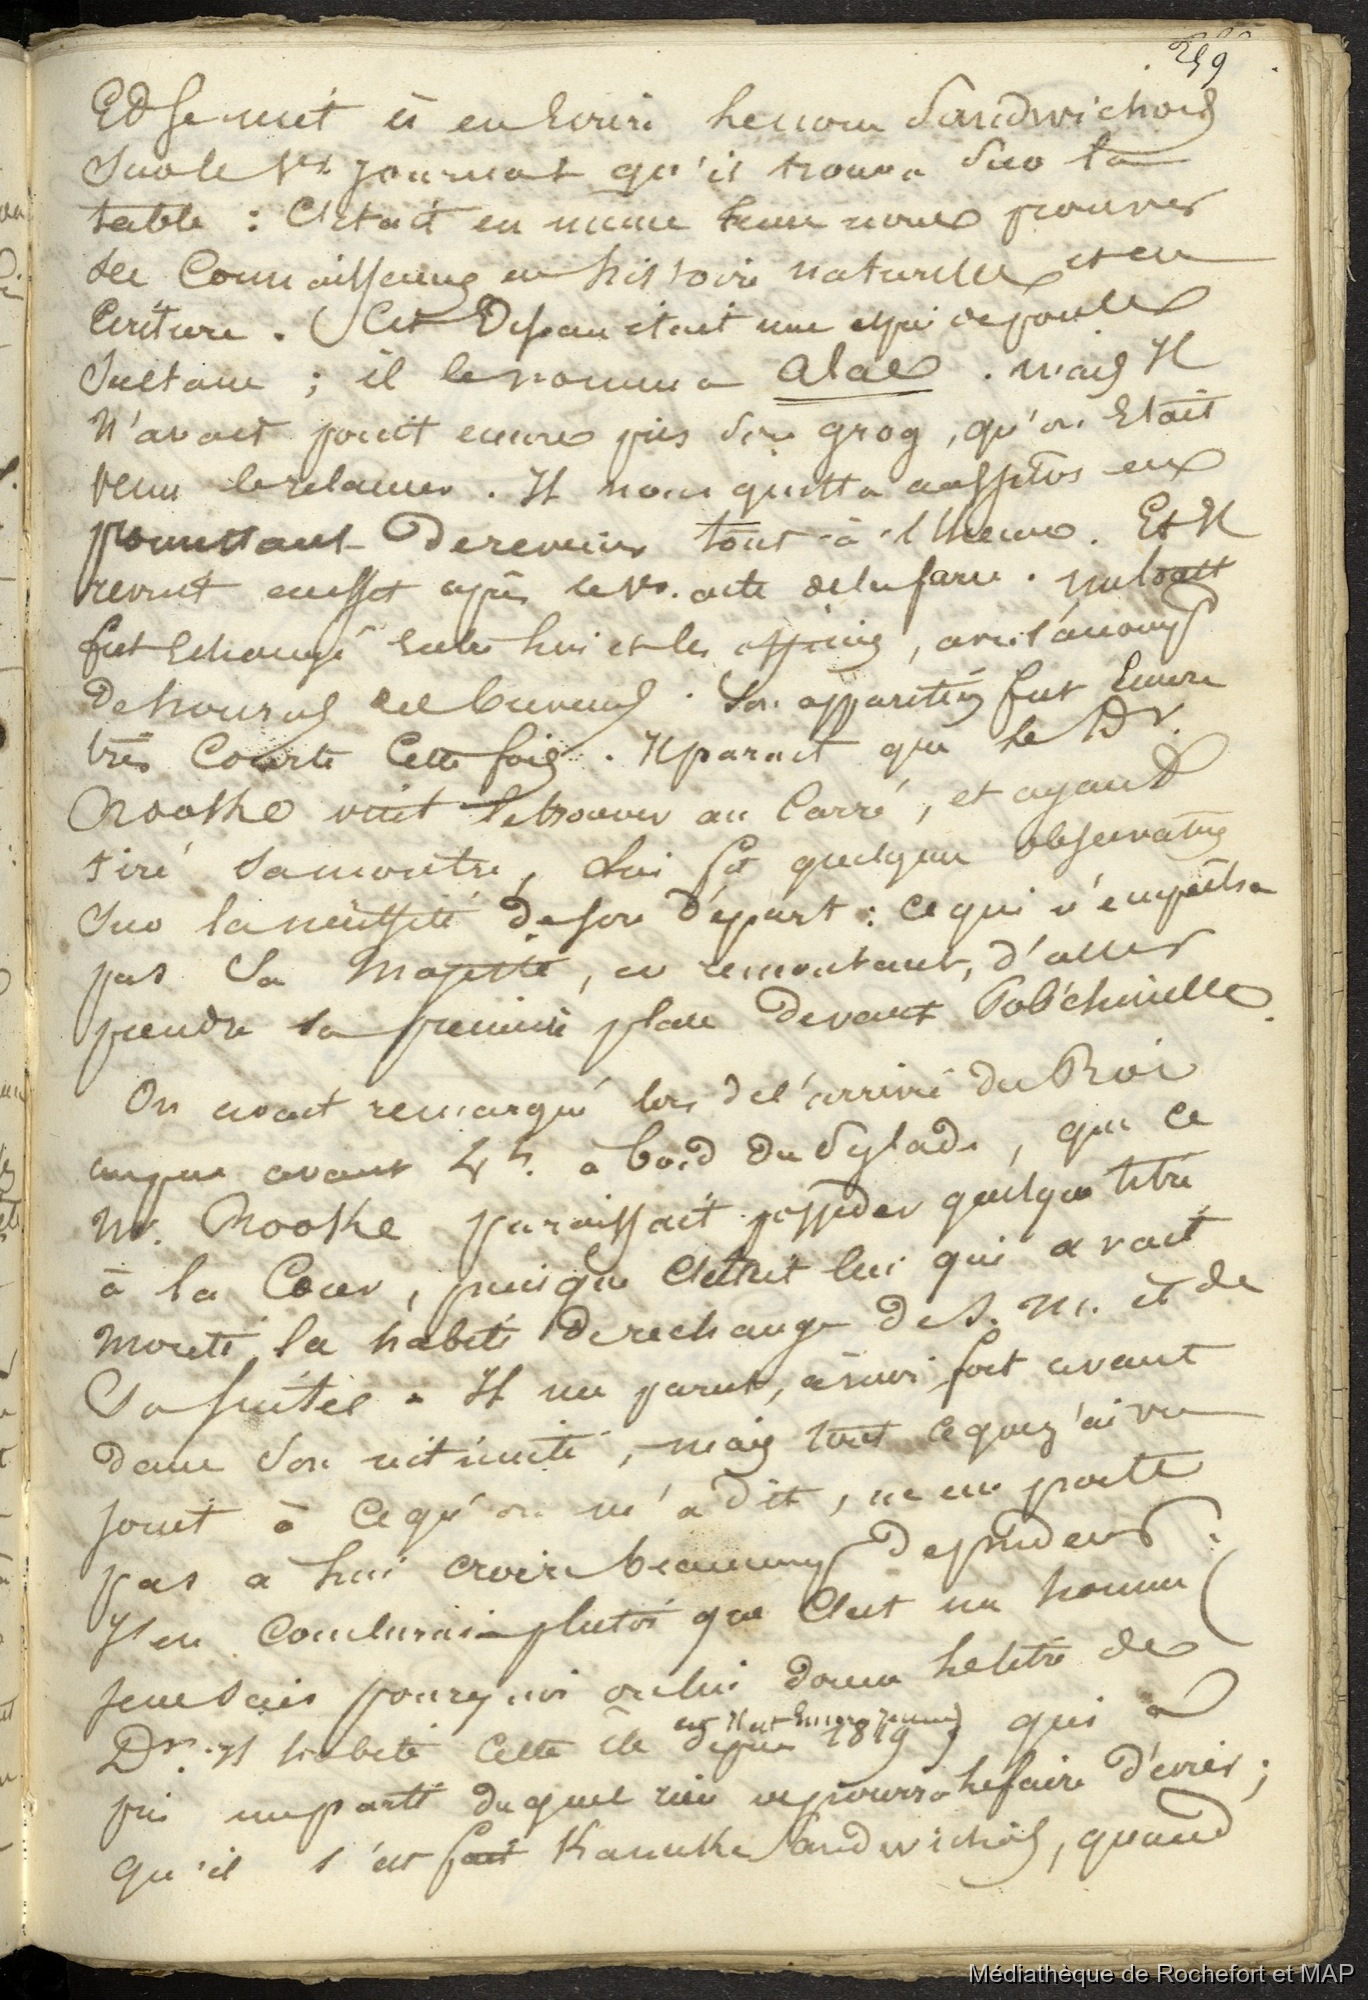 259
Et se mit à en écrire le nom Sandwichois
sur le 1er journal qu'il trouva sur la
table : C'était en même tems nous prouver
ses Connaissances en histoire naturelle et en
Ecriture. Cet Oiseau était une espèce de poule
Sultane ; il le nomma alae. mais Il
N'avait point encore pris son grog, qu'on Etait
venu le réclamer. Il nous quitta aussitôt en
promettant De revenir tout-à-l'heure. Et Il
revint en effet après le 1er. acte de la farce. un toast
fut Echangé entre lui et les officiers,
De houras
très Courte Cette fois. Il parait que le Dr.
Rooke vint le trouver au Carré, et ayant
tiré sa montre, lui fit quelques observations
sur la nécessité De son Départ : ce qui n'empêcha
pas Sa Majesté, en remontant, d'aller
prendre sa première place Devant Polichinelle.
On avait remarqué lors de l'arrivée du Roi
un peu avant 4h. à bord du Pylade, que ce
Mr. Rooke paraissait posséder quelque titre
à la Cour, puisque C'était lui qui avait
monté les habits De rechange De S. M. et de
Sa suite. Il me parut, à moi fort avant
dans Son intimité, mais tout ce que j'ai vu
joint à ce qu'on m'a dit, ne me porte
pas à lui croire beaucoup De pudeur :
J'en Conclurais plutôt que C'est un homme (
je ne sais pourquoi on lui donne le titre de
Dr. Il habite Cette île depuis 1819 ) qui a
et Il est Encore jeune
pris un parti duquel rien ne pourra le faire Dévier ;
qu'il s'est fait Kanake Sandwichois, quand
Médiathèque de Rochefort et MAP